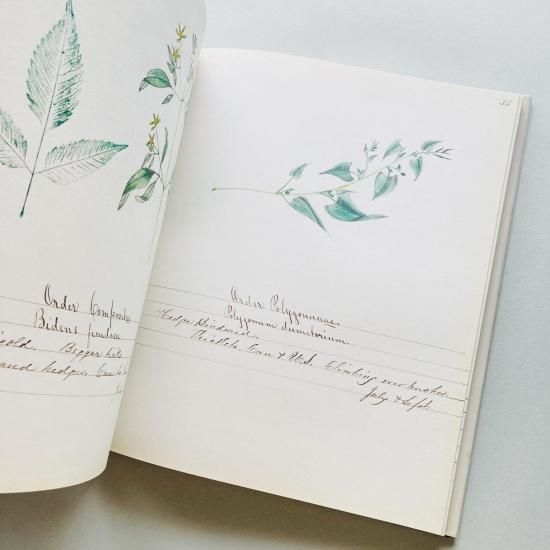 Order Compositae
Bidens frondosa
gold. Beggar ticks
and hedges. Can
55
Order Polygonaceae.
Polygonum dumetorum.
Hedge Bindweed.
Thickets. Can & U.S. Climbing over bushes.
July & Sept.